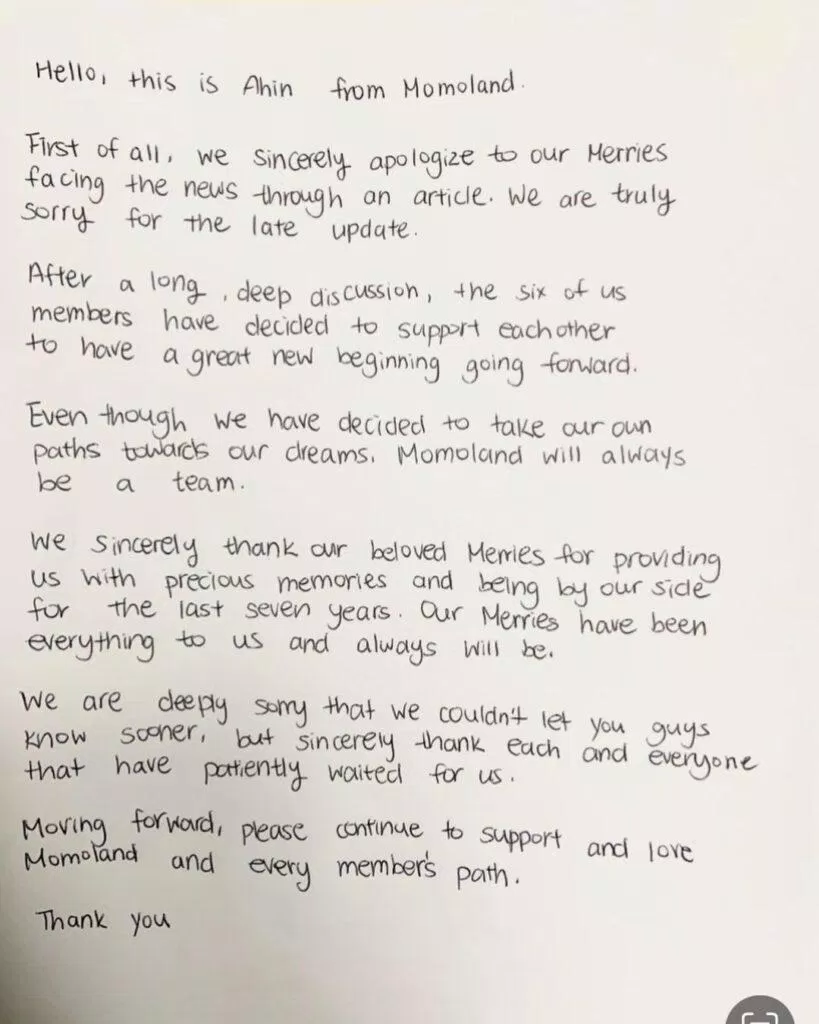 Hello, this is Ahin from Momoland.
First of all, we sincerely apologize to our Merries
facing the news through an article. We are truly
sorry for the late update.
After a long, deep discussion, the six of us
members have decided to support eachother
to have a great new beginning going forward.
Even though we have decided to take our own
paths towards our dreams. Momoland will always
be a team.
We sincerely thank our beloved Merries for providing
us with precious memories and being by our side
for the last seven years. Our Merries have been
everything to us and always will be.
We are deeply sorry that we couldn't let you guys
know sooner, but sincerely thank each and everyone
that have patiently waited for us.
Moving forward, please continue to support and love
Momoland and every member's path.
Thank you